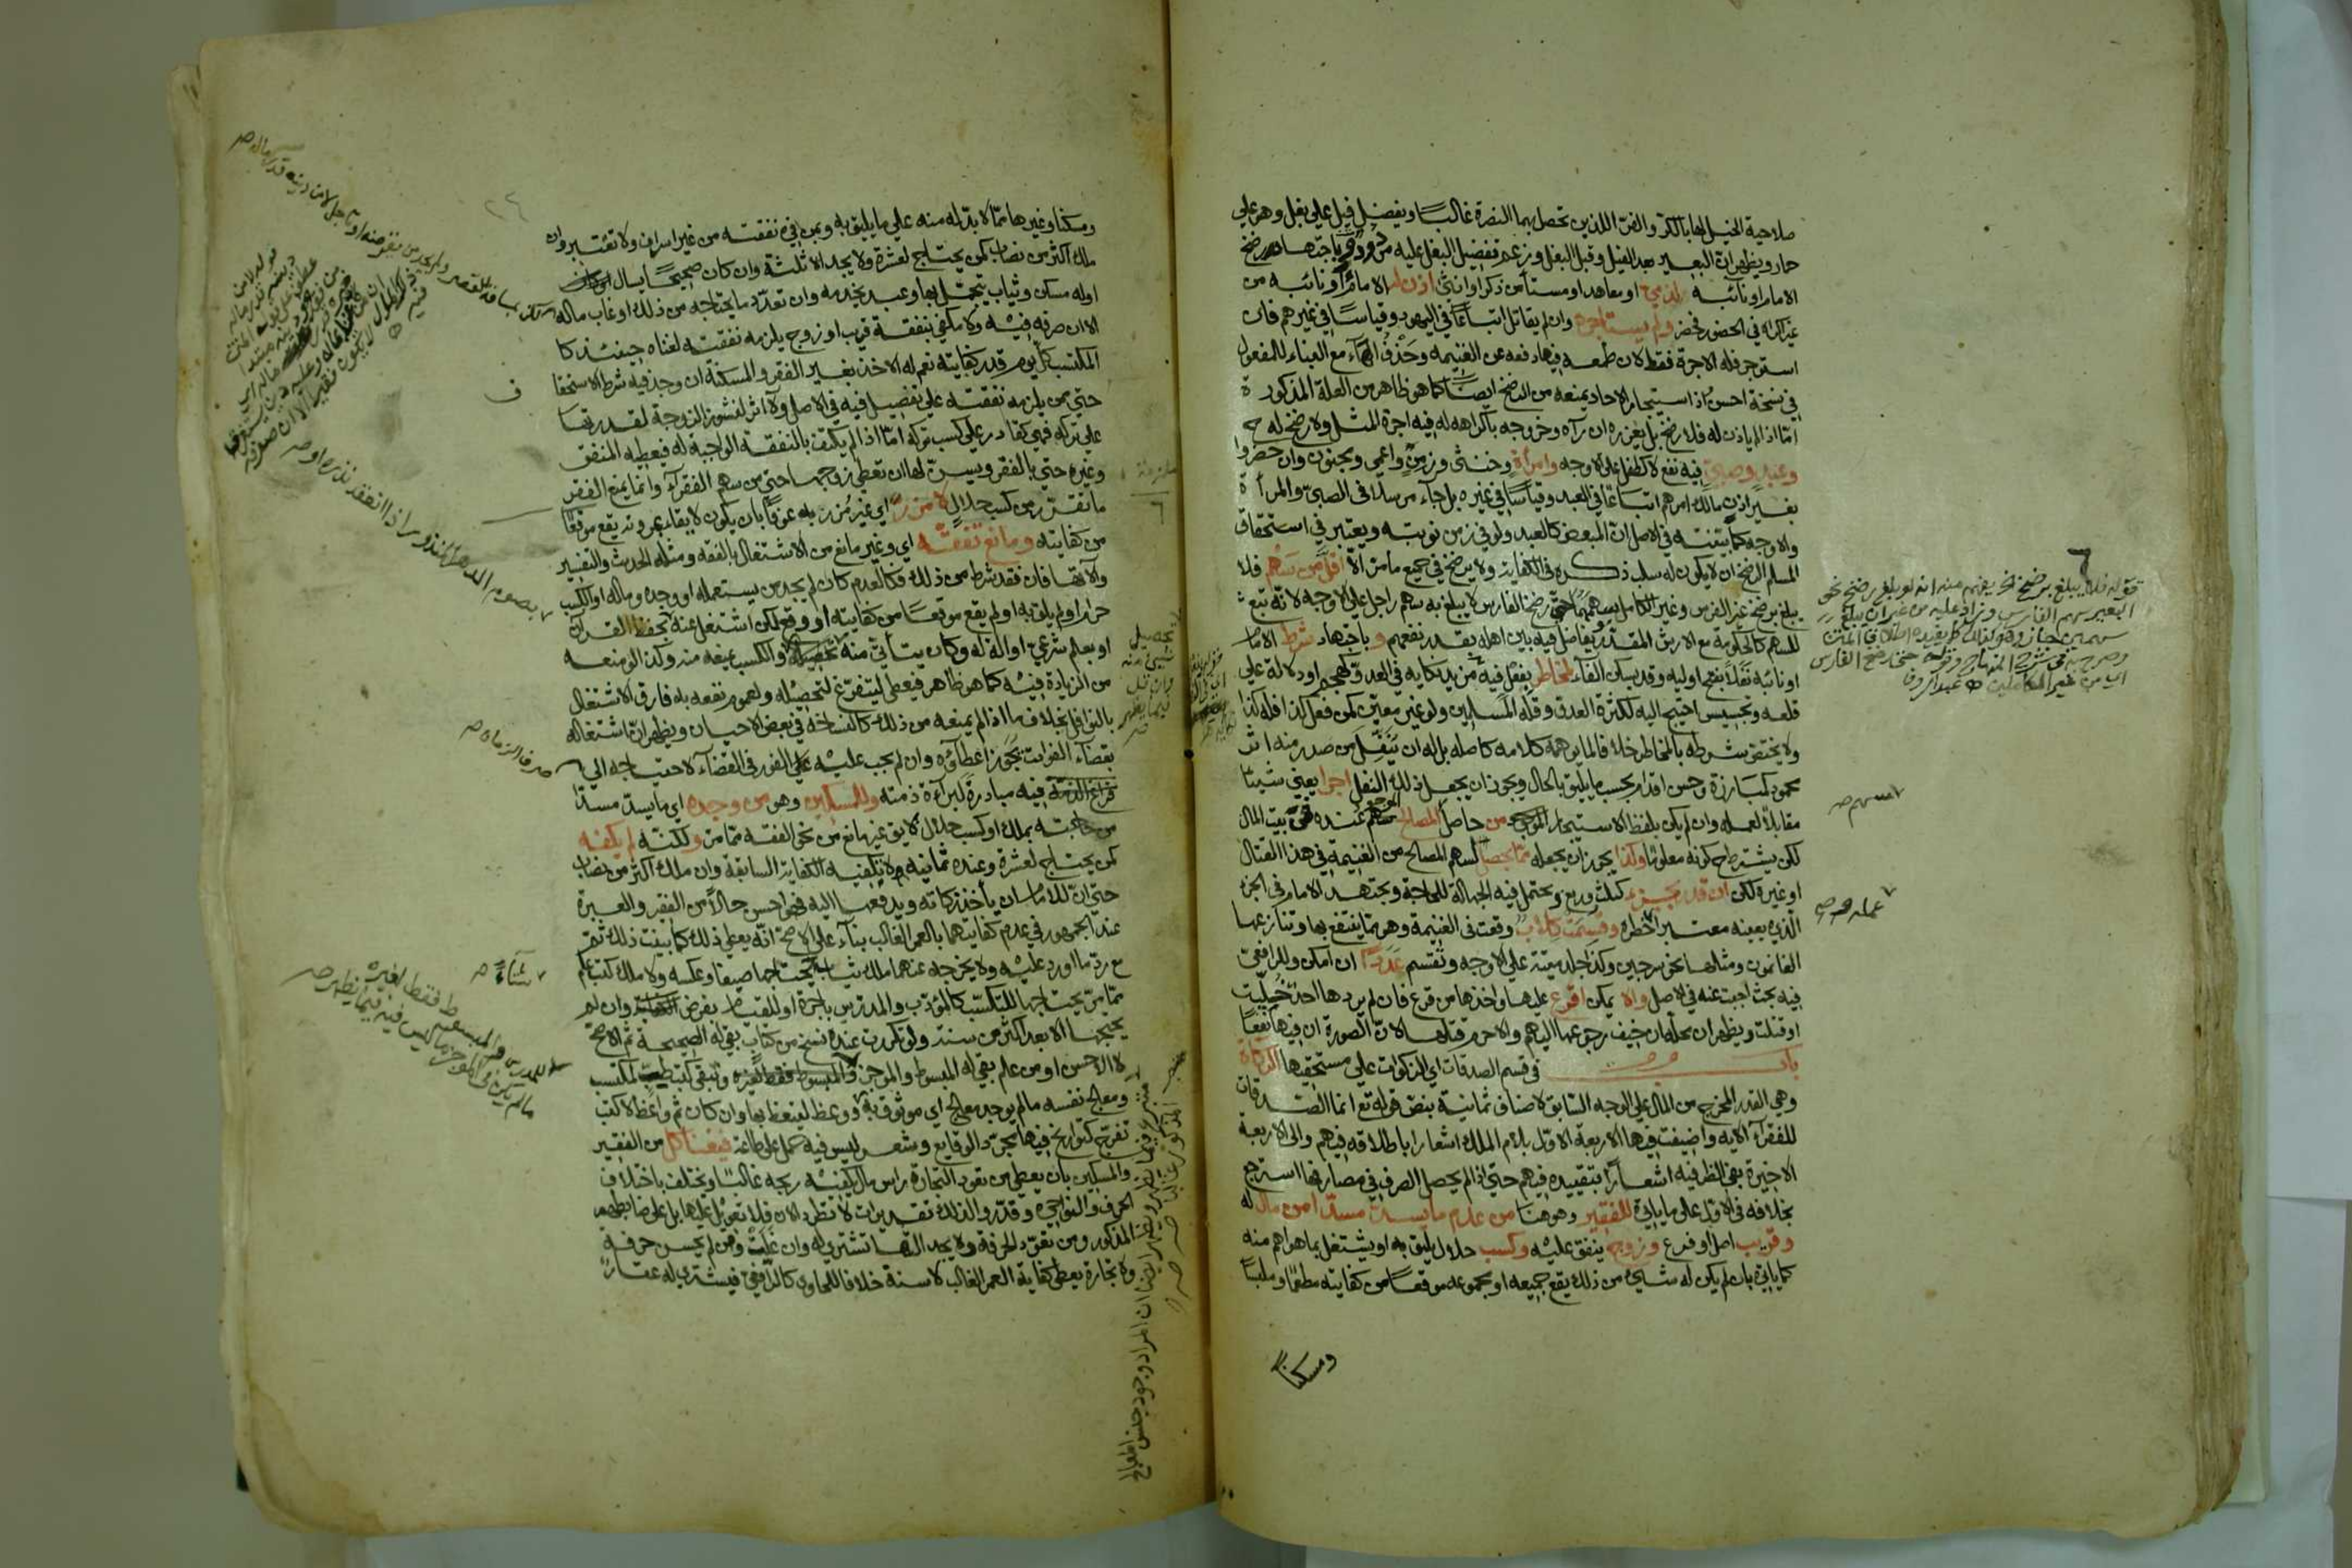 صلاحية الخيل لها بالكر والفر اللذين تحصل بهما النصرة غالبا ويفضل فيل على بغل وهو على
حمار ويظهر ان البعير بعد الفيل وقبل البغل وزعم تفضيل البغل عليه مردود باجتهاد
الامام او نائبه لذمي او معاهد او مستأمن ذكر او انثى اذن له الامام او نائبه من
غير اكراه في الحضور فحضر ولم يستاجره وان لم يقاتل اتباعا في اليهود وقياسا في غيرهم فان
استوجر فله الاجرة فقط لان طمعه فيها دفعه عن الغنيمه وحذف الهاء مع البناء للمفعول
في نسخة احسن اذ استيجار الاحاد يمنعه من الرضخ ايضا كما هو ظاهر من العلة المذكورة
امّا اذا لم ياذن له فلا رضخ بل يعزره ان رآه وخروجه باكراهه له فيه اجرة المثل ولا رضخ له ح
وعبد وصبي فيه نفع لا كطفل على الاوجه وامرأة وخنثى وزمن واعمى ومجنون وان حضروا
بغير اذن مالك امرهم اتباعا في العبد وقياسا في غيره بل جاء مرسلا في الصبي والمرأة
والاوجه كما بينته في الاصل ان المبعض كالعبد ولو في زمن نوبته ويعتبر في استحقاق
المسلم الرضخ ان لا يكون له سلب ذكره في الكفاية ولا يرضخ في جميع ما مر الا اقل من سهم فلا
يبلغ برضخ غير الفرس وغير الكامل سهمهما حتى رضخ الفارس لا يبلغ به سهم راجل على الاوجه لانه تبع
للسهم كالحكومة مع الارش المقدر يفاضل فيه بين اهله بقدر نفعهم وباجتهاد شرط الامام
او نائبه نفلا بفتح اوليه وقد يسكن الفاء لمخاطر يفعل فيه من يد نكايه في العدو كهجم او دلالة على
قلعه وتجسيس احتيج اليه لكثرة العدو وقلة المسلمين ولو غير معين كمن فعل كذا فله كذا
ولا يختص شرطه بالمخاطر خلافا لما يوهمه كلامه كاصله بل له ان ينفل من صدر منه اثر
محمود كمبارزة وحسن اقدام بحسب ما يليق بالحال ويجوز ان يجعل ذلك النفل اجرا يعني شيئا
مقابلا لعمله وان لم يكن بلفظ الاستيجار من حاصل المصالح عنده في بيت المال
لكن يشترط ح كونه معلوما وكذا يجوز ان يجعله مما يحصل لسهم المصالح من الغنيمة في هذا القتال
او غيره لكن ان قدر بجزء كثلث وربع ويحتمل فيه الجهالة للحاجة ويجتهد الامام في الجزء
الذي يعينه معتبرا خطره وقسمت كلاب وقعت في الغنيمة وهي مما ينتفع بها وتنازعها
الغانمون ومثلها نحو سرجين وكذا جلد ميتة على الاوجه وتقسم عددا ان امكن وللرافعي
فيه بحث اجبت عنه في الاصل والا يمكن اقرع عليها واخذها من قرع فان لم يردها احد خليت
او قتلت ويظهر ان محله ما ان خيف رجوعها اليهم والا حرم قتلها لان الصورة ان فيها نفعا
باب في قسم الصدقات اي الزكوات على مستحقيها الزكاة
وهي القدر المخرج من المال على الوجه السابق لاصناف ثمانية بنص قوله تع انما الصدقات
للفقراء الآيه واضيفت فيها الاربعة الاول بلام الملك اشعارا باطلاقه فيهم والى الاربعة
الاخيرة بفي الظرفيه اشعارا بتقييده فيهم حتى اذا لم يحصل الصرف في مصارفها استرجع
بخلافه في الاول على ما ياتي للفقير وهو هنا من عدم ما يسد مسدا من مال له
وقريب اصل او فرع وزوج ينفق عليه وكسب حلال يليق به او يشتغل بما هو اهم منه
كما ياتي بان لم يكن له شيء من ذلك يقع جميعه او مجموعه موقعا من كفايته مطعما وملبسا
ومسكنا
قوله فلا يبلغ برضخ الخ يفهم منه انه لو بلغ برضخ نحو
البعير سهم الفارس وزاد عليه من غير ان يبلغ
سهمين جاز
وصرح به في شرح المنهاج وقوله حتى رضخ الفارس
اي من غير الكاملين
سهم صح
عمله صح
ومسكنا وغيرها مما لا بد له منه على ما يليق به وبمن في نفقته من غير اسراف ولا تقتير وان
ملك اكثر من نصاب كمن يحتاج لعشرة ولا يجد الا ثلثة وان كان صحيحا يسال
او له مسكن وثياب يتجمل بها وعبد يخدمه وان تعدد ما يحتاجه من ذلك او غاب ماله
الا ان صرفه فيه ولا مكفي بنفقة قريب او زوج يلزمه نفقته لغناه حينئذ كا
المكتسب كل يوم قدر كفايته نعم له الاخذ بغير الفقر والمسكنة ان وجد فيه شرط الاستحقا
حتى من يلزمه نفقته على تفضيل فيه في الاصل ولا اثر لنشوز الزوجة لقدرتها
على تركه فهي كقادر على كسب تركه امّا اذا لم يكتف بالنفقة الواجبة له فيعطيه المنفق
وغيره حتى بالفقر ويسن لها ان تعطي زوجها حتى من سهم الفقراء وانما يمنع الفقر
ما تقرر من كسب حلال لا مزر اي غير مزر به عرفا بان يكون لايقا بمروته يقع موقعا
من كفايته ومانع تفقه اي وغير مانع من الاشتغال بالفقه ومثله الحديث والتفسير
والاتها فان فقد شرط من ذلك فكالعدم كان لم يجد من يستعمله او وجده وماله او الكسب
حرام او لم يلق به او لم يقع موقعا من كفايته او وقع لكن اشتغل عنه بحفظ القرآن
او بعلم شرعي او الة له وكان يتأتى منه تحصيله والكسب يمنعه منه وكذا لو منعه
من الزيادة فيه كما هو ظاهر فيعطى ليتفرغ لتحصيله ولعموم نفعه به فارق الاشتغال
بالنوافل بخلاف ما اذا لم يمنعه من ذلك كالنساخة في بعض الاحيان ويظهر ان اشتغاله
بقضاء الفوايت يجوز اعطاؤه وان لم يجب عليه على الفور في القضاء لاحتياجه الى
فراغ الذمة فيه مبادرة لبراءة ذمته وللمسكين وهو من وجده اي ما يسد مسدا
من حاجته بملك او كسب حلال لايق غير مانع من نحو الفقه مما مر ولكنه لم يكفه
كمن يحتاج لعشرة وعنده ثمانيه ولا تكفيه الكفاية السابقة وان ملك اكثر من نصاب
حتى ان للامام ان يأخذ زكاته ويدفعها اليه فهو احسن حالا من الفقير والعبرة
عند الجمهور في عدم كفايتهما بالعمر الغالب بناء على الاصح انه يعطى ذلك كما بينت ذلك ثم
مع رد ما اورد عليه ولا يخرجه عنهما ملك ثياب يحتاجها صيفا وعكسه ولا ملك كتب علم
مما مر يحتاجها للتكسب كالمؤدب والمدرس باجرة او للقيام بفرض وان لم
يحتجها الا بعد اكثر من سنة ولو تكررت عنده نسخ من كتاب بقي له الصحيحة ثم الاصح
لا الاحسن او من علم بقي له المبسوط والموجز وتبقى كتب طب لمكتسب
ومعالج نفسه ما لم يوجد معالج اي موثوق به ووعظ ليتعظ بها وان كان ثم واعظ لا كتب
تفرج كتواريخ فيها مجرد الوقايع وشعر ليس فيه حمل على طاعة فيغنا كل من الفقير
والمسكين بان يعطى من تعود التجارة راس مال يكفيه ربحه غالبا ويختلف باختلاف
الحرف والنواحي وقدروا لذلك تقديرات لا تطرد الان فلا تعويل عليها بل على ضابطهم
المذكور ومن تعود الحرفة ولا يجد التها تشترى له وان غلت ومن لم يحسن حرفة
ولا تجارة يعطى كفاية العمر الغالب لا سنة خلافا للحاوي كالرافعي فيشتري له عقارا
يصوم الدهر المنذور اذا انعقد نذره او صح
صرفا لزمانه صح
شتاء صح
للمدرس والمبسوط فقط لغيره
ما لم يكن في الموجز ما ليس فيه فيما يظهر صح